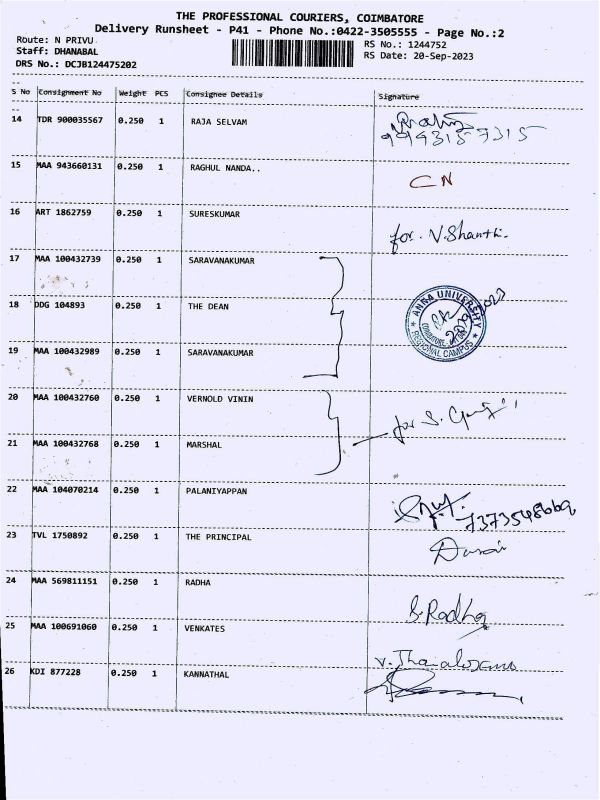 THE PROFESSIONAL COURIERS, COIMBATORE
Delivery Runsheet - P41 - Phone No.:0422-3505555 - Page No.:2
Route: N PRIVU
RS No.: 1244752
Staff: DHANABAL
RS Date: 20-Sep-2023
DRS No.: DCJB124475202
S No Consignment No Weight PCS Consignee Details Signature
14 TDR 900035567 0.250 1 RAJA SELVAM
15 MAA 943660131 0.250 1 RAGHUL NANDA..
CN
16 ART 1862759 0.250 1 SURESKUMAR
for. V.Shanthi.
17 MAA 100432739 0.250 1 SARAVANAKUMAR
18 DDG 104893 0.250 1 THE DEAN
ANNA UNIVERSITY
COIMBATORE
REGIONAL CAMPUS
19 MAA 100432989 0.250 1 SARAVANAKUMAR
20 MAA 100432760 0.250 1 VERNOLD VININ
for S.
21 MAA 100432768 0.250 1 MARSHAL
22 MAA 104070214 0.250 1 PALANIYAPPAN
23 TVL 1750892 0.250 1 THE PRINCIPAL
24 MAA 569811151 0.250 1 RADHA
S.Radha
25 MAA 100691060 0.250 1 VENKATES
26 KDI 877228 0.250 1 KANNATHAL